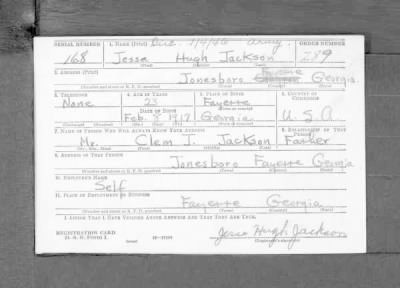 SERIAL NUMBER 1. NAME (Print) Disc. 1/4/45 army. ORDER NUMBER
168 Jessa Hugh Jackson 289
(First) (Middle) (Last)
2. ADDRESS (Print)
Jonesboro Fayette Georgia
(Number and street or R. F. D. number) (Town) (County) (State)
3. TELEPHONE 4. AGE IN YEARS 5. PLACE OF BIRTH 6. COUNTRY OF CITIZENSHIP
None 23 Fayette
DATE OF BIRTH (Town or county)
Feb. 8 1917 Georgia U. S. A
(Mo.) (Day) (Yr.) (State or country)
7. NAME OF PERSON WHO WILL ALWAYS KNOW YOUR ADDRESS 8. RELATIONSHIP OF THAT PERSON
Mr. Clem J. Jackson Father
(Mr., Mrs., Miss) (First) (Middle) (Last)
9. ADDRESS OF THAT PERSON
Jonesboro Fayette Georgia
(Number and street or R. F. D. number) (Town) (County) (State)
10. EMPLOYER'S NAME
Self
11. PLACE OF EMPLOYMENT OR BUSINESS
Fayette Georgia
(Number and street or R. F. D. number) (Town) (County) (State)
I AFFIRM THAT I HAVE VERIFIED ABOVE ANSWERS AND THAT THEY ARE TRUE.
REGISTRATION CARD
D. S. S. FORM 1 16—17105
(over)
Jessa Hugh Jackson
(Registrant's signature)